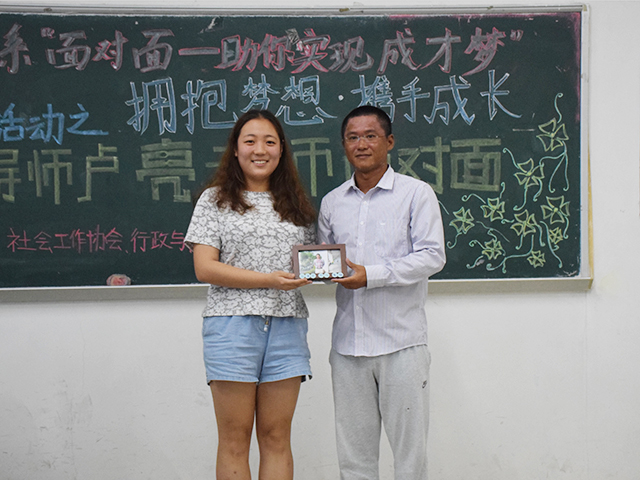 系“面对面—助你实现成才梦”
活动之 拥抱梦想·携手成长
导师卢亮 对面
社会工作协会、行政与